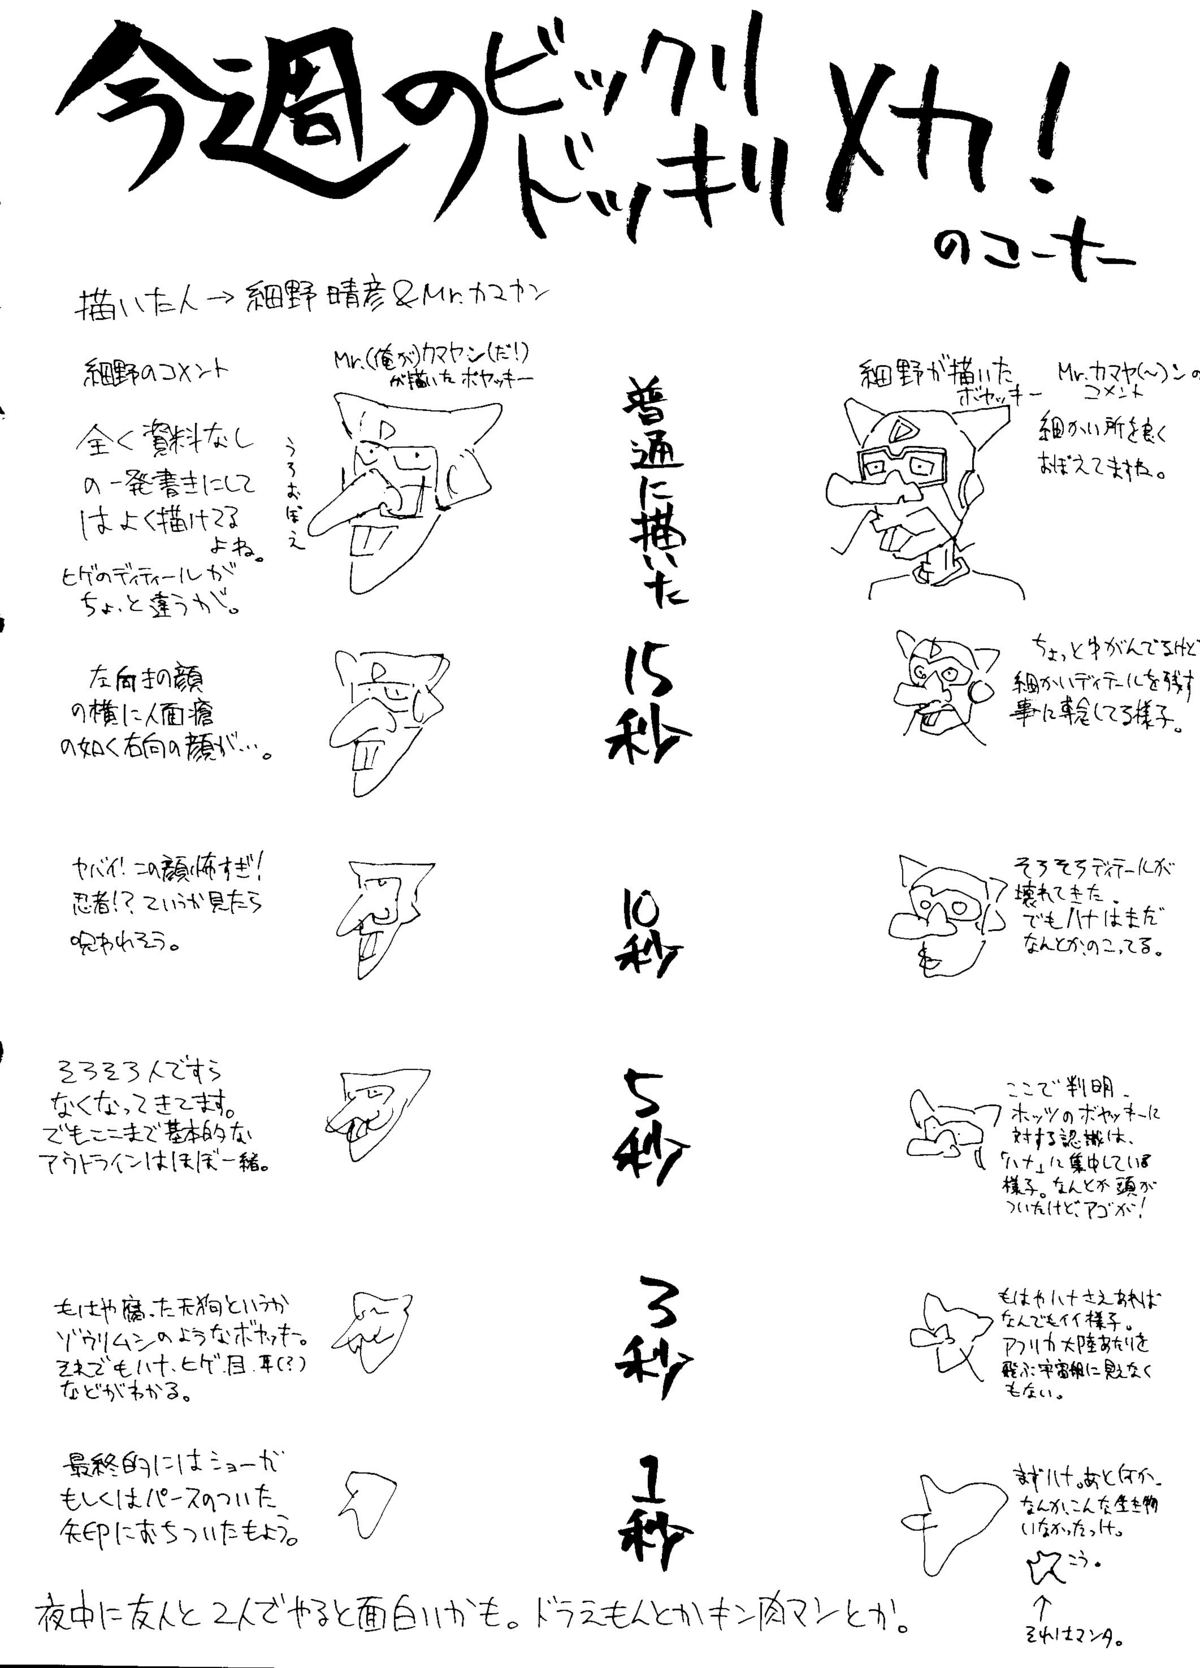 今週のビックリ
ドッキリメカ!
のコーナー
描いた人→細野晴彦&Mr.カマヤン
細野のコメント
全く資料なし
の一発書きにして
はよく描けてる
よね。
ヒゲのディティールが
ちょっと違うが。
Mr.(俺が)カマヤン(だ!)
が描いたボヤッキー
うろおぼえ
普通に描いた
細野が描いた
ボヤッキー
Mr.カマヤ(〜)ンの
コメント
細かい所を良く
おぼえてますね。
左向きの顔
の横に人面瘡
の如く右向の顔が…。
15秒
ちょっとゆがんでるけど
細かいディテールを残す
事に専念してる様子。
ヤバイ!この顔怖すぎ!
忍者!?ていうか見たら
呪われそう。
10秒
そろそろディテールが
壊れてきた。
でもハナはまだ
なんとかのこってる。
そろそろ人ですら
なくなってきてます。
でもここまで基本的な
アウトラインはほぼ一緒。
5秒
ここで判明、
ホッツのボヤッキーに
対する認識は、
「ハナ」に集中している
様子。なんとか頭が
ついたけど、アゴが!
もはや腐った天狗というか
ゾウリムシのようなボヤッキー。
それでもハナ、ヒゲ、目、耳(?)
などがわかる。
3秒
もはやハナさえあれば
なんでもイイ様子。
アフリカ大陸あたりを
飛ぶ宇宙船に見えなく
もない。
最終的にはショーガ
もしくはパースのついた
矢印におちついたもよう。
1秒
まずハナ。あと何か、
なんかこんな生き物
いなかったっけ。
こう。
↑
それはマンタ。
夜中に友人と2人でやると面白いかも。ドラえもんとかキン肉マンとか。